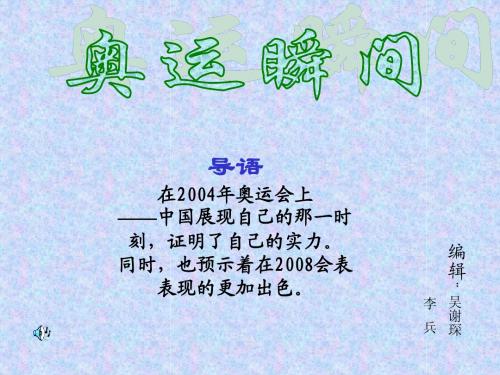 奥运瞬间
导语
在2004年奥运会上
——中国展现自己的那一时
刻，证明了自己的实力。
同时，也预示着在2008会表
表现的更加出色。
编辑：吴谢琛
李兵